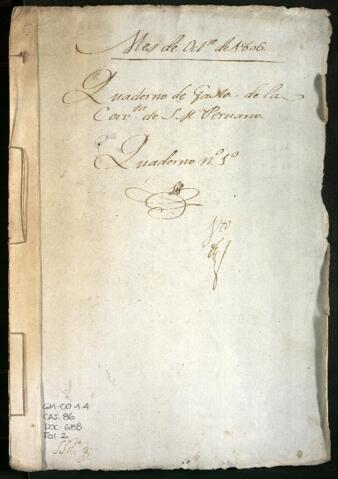 Mes de Oct.re de 1806
Quaderno de Gasto de la
Corv.ta de S. M. Peruano.
Quaderno nº 1º
GM-CO 4.4
CAJ: 86
DOC: 688
Fol: 2